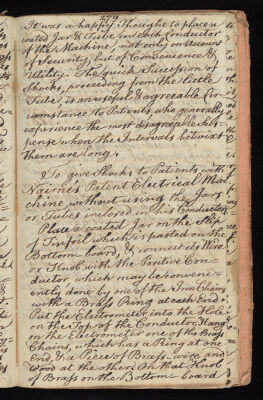 279
It was a happy Thought to place a
coated Jar & Tube in each Conductor
of the Machine, not only on Account
of Security, but of Convenience &
Utility. The quick Succession of
Shocks, proceeding from the little
Tube, is an useful & agreeable Cir-
cumstance to Patients who generally
experience the most disagreeable Sus-
pense when the Intervals betwixt
them are long.
To give Shocks to Patients with
Nairne's Patent Electrical Ma-
chine, without using the Jars
or Tubes inclosed in this Conductor.
Place a coated Jar on the Slip
of Tinfoil which is pasted on the
Bottom board, & connect its Wire
or Knob with the Positive Con-
ductor, which may be conveni-
ently done by one of the Iron Chains
with a Brass Ring at each End:
Put the Electrometer into the Hole
on the Top of the Conductor, Hang
on the Electrometer one of the Brass
Chains, which has a Ring at one
End, & a Piece of Brass-wire and
Wood at the other: On that Knob
of Brass on the Bottom board